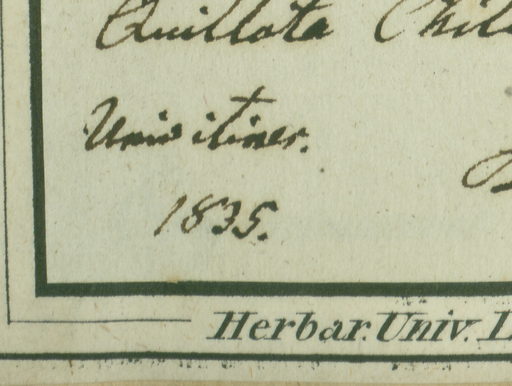 Quillota Chil
Unio itiner.
1835.
Herbar. Univ. L